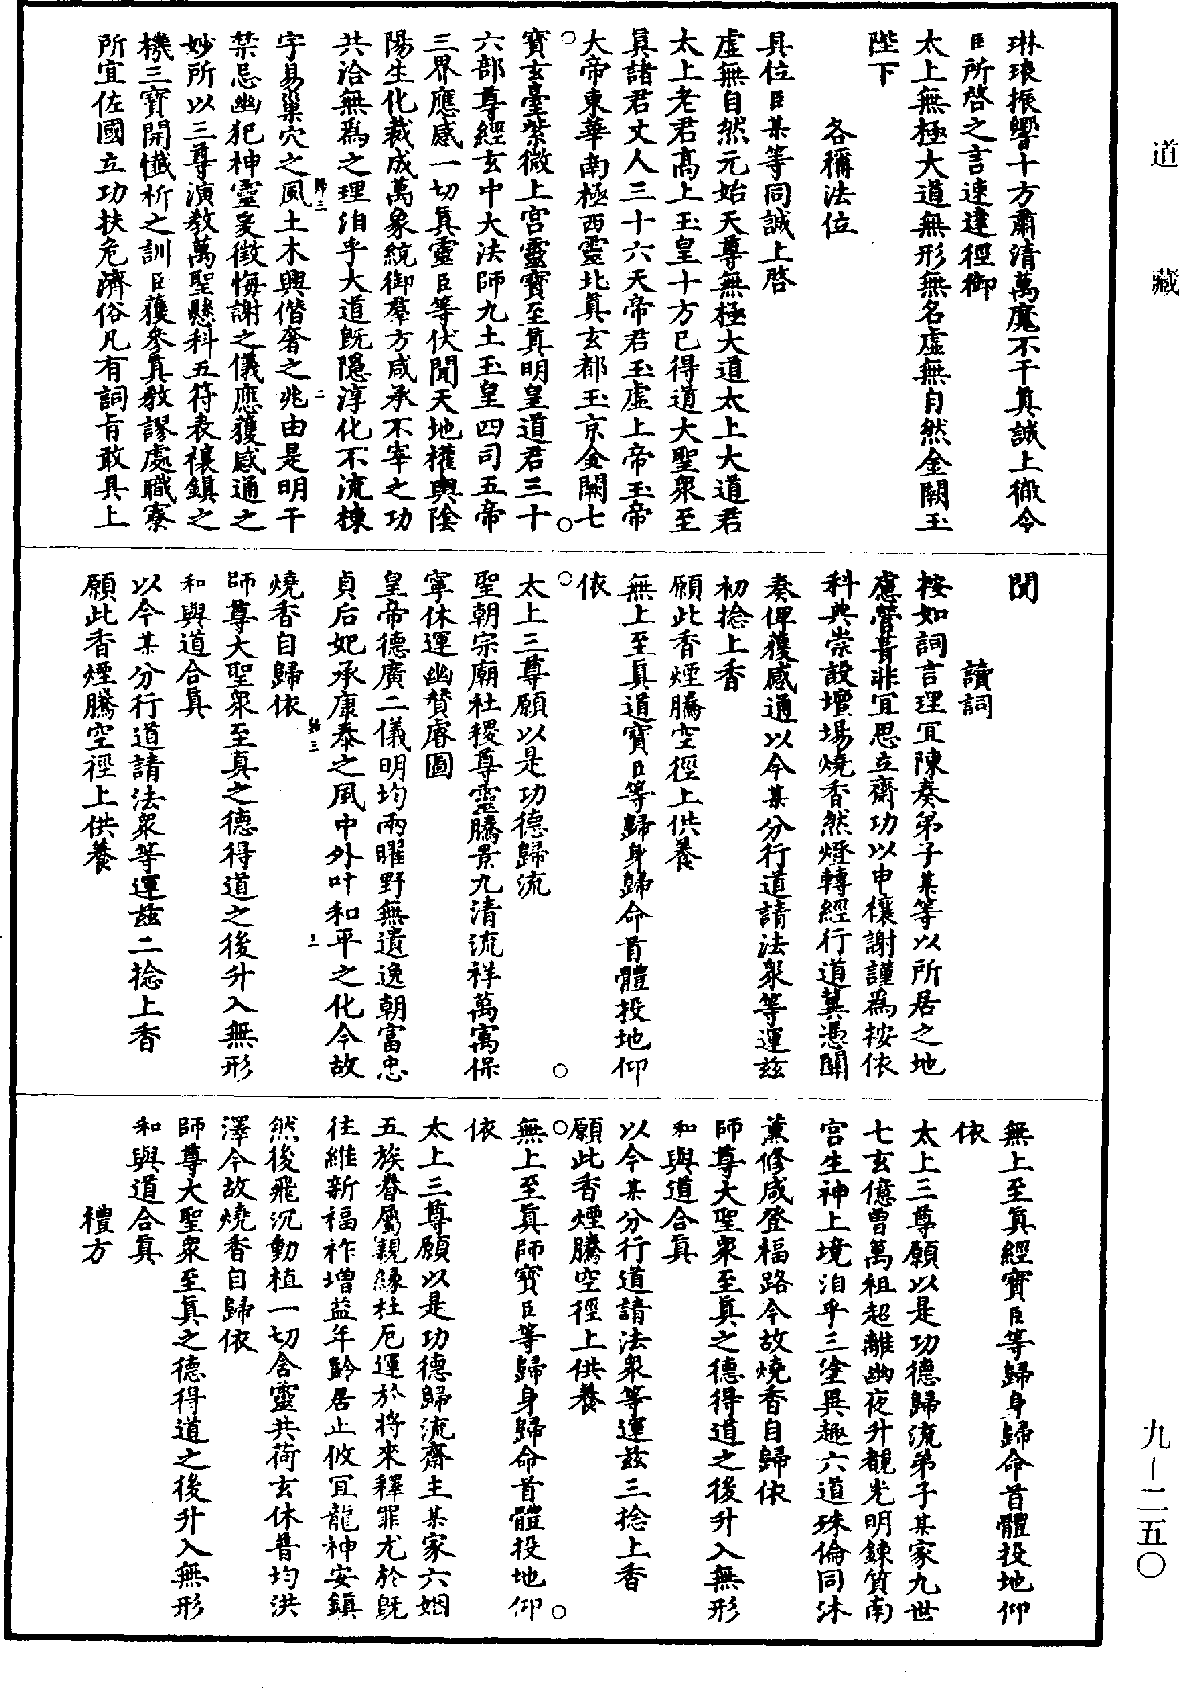 道藏
九—二五〇
琳琅振響十方肅清萬魔不干真誠上徹今
臣所啓之言速達徑御
太上無極大道無形無名虛無自然金闕玉
陛下
各稱法位
具位臣某等同誠上啓
虛無自然元始天尊無極大道太上大道君
太上老君高上玉皇十方已得道大聖衆至
真諸君丈人三十六天帝君玉虛上帝玉帝
大帝東華南極西靈北真玄都玉京金闕七
寶玄臺紫微上宮靈寶至真明皇道君三十
六部尊經玄中大法師九土玉皇四司五帝
三界應感一切真靈臣等伏聞天地權輿陰
陽生化裁成萬象統御羣方咸承不宰之功
共洽無為之理洎乎大道旣隱淳化不流棟
宇易巢穴之風土木興僭奢之兆由是明干
禁忌幽犯神靈爰徵悔謝之儀應獲感通之
妙所以三尊演教萬聖懸科五符表禳鎮之
機三寶開懺祈之訓臣獲參真教謬處職寮
所宜佐國立功扶危濟俗凡有詞旨敢具上
聞
讀詞
按如詞言理宜陳奏弟子某等以所居之地
應營葺非宜思立齋功以申禳謝謹為按依
科典崇設壇場燒香然燈轉經行道冀憑關
奏俾獲感通以今某分行道請法衆等運茲
初捻上香
願此香煙騰空徑上供養
無上至真道寶臣等歸身歸命首體投地仰
依
太上三尊願以是功德歸流
聖朝宗廟社稷尊靈騰景九清流祥萬寓保
寧休運幽贊睿圖
皇帝德廣二儀明均兩曜野無遺逸朝富忠
貞后妃承康泰之風中外叶和平之化今故
燒香自歸依
師尊大聖衆至真之德得道之後升入無形
和與道合真
以今某分行道請法衆等運茲二捻上香
願此香煙騰空徑上供養
無上至真經寶臣等歸身歸命首體投地仰
依
太上三尊願以是功德歸流弟子某家九世
七玄億曾萬祖超離幽夜升覩光明鍊質南
宮生神上境洎乎三塗異趣六道殊倫同沐
薰修咸登福路今故燒香自歸依
師尊大聖衆至真之德得道之後升入無形
和與道合真
以今某分行道請法衆等運茲三捻上香
願此香煙騰空徑上供養
無上至真師寶臣等歸身歸命首體投地仰
依
太上三尊願以是功德歸流齋主某家六姻
五族眷屬親緣杜厄運於將來釋罪尤於旣
往維新福祚增益年齡居止攸宜龍神安鎮
然後飛沉動植一切含靈共荷玄休普均洪
澤今故燒香自歸依
師尊大聖衆至真之德得道之後升入無形
和與道合真
禮方